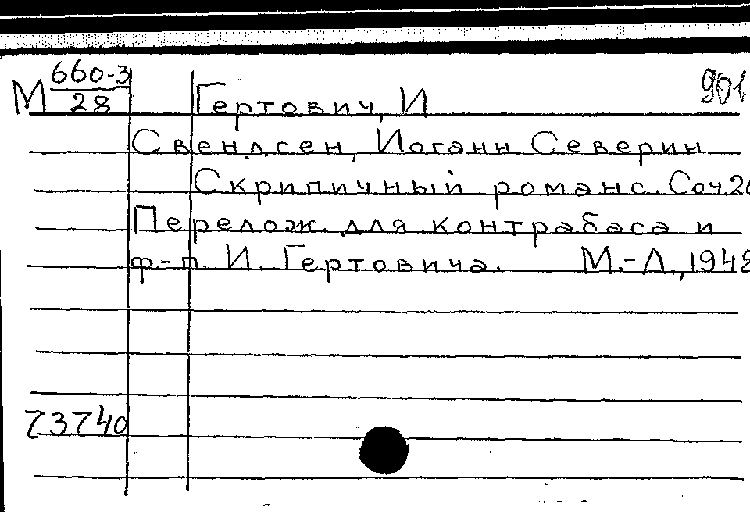 М 660-3/28
Гертович, И
901
Свендсен, Иоганн Северин
Скрипичный романс. Соч. 26
Перелож. для контрабаса и
ф-п. И. Гертовича. М.-Л., 1948
73740